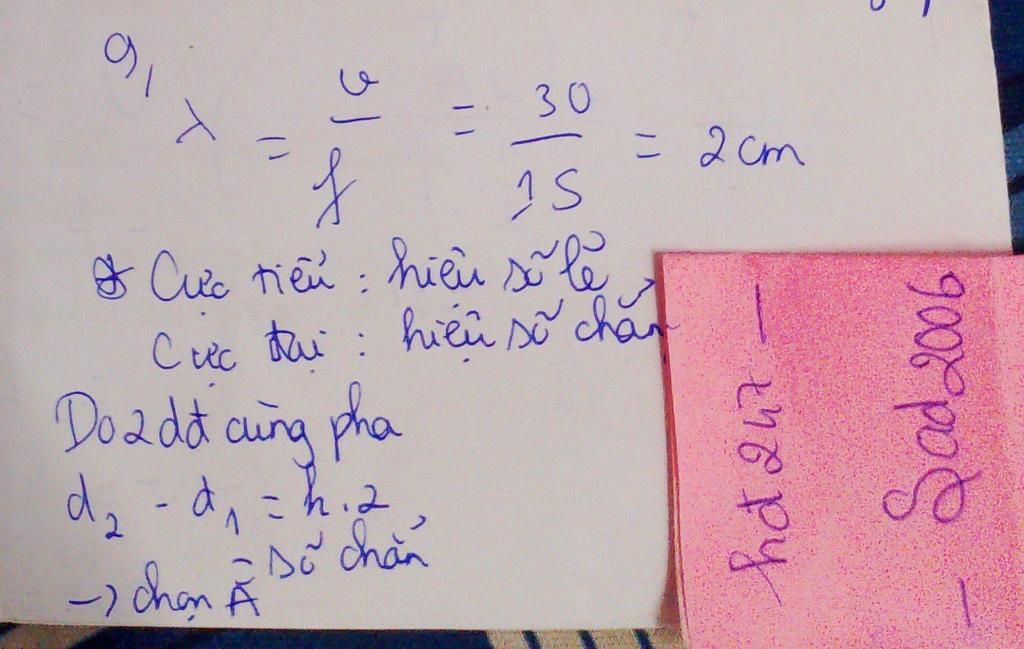 9,
λ = v/f = 30/15 = 2cm
Cực tiểu : hiệu số lẻ
Cực đại : hiệu số chẵn
Do 2 dđ cùng pha
d₂ - d₁ = k.2
= số chẵn
→ chọn A
hđ 247 -
- Sad2006